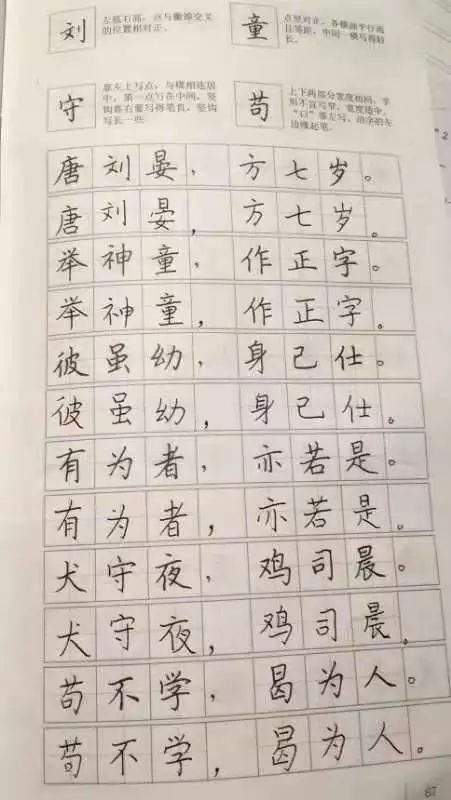 刘
左低右高，点与撇捺交叉
的位置相对正。
童
点竖对正，各横画平行而
且等距，中间一横写得较
长。
守
靠左上写点，与横相连居
中，第一点写在中间，竖
钩靠右要写得笔直，竖钩
写长一些
苟
上下两部分宽度相同，字
形不宜写窄，宽度适中，
“口”靠左写，沿字的左
边缘起笔。
唐刘晏，方七岁。
唐刘晏，方七岁。
举神童，作正字。
举神童，作正字。
彼虽幼，身己仕。
彼虽幼，身己仕。
有为者，亦若是。
有为者，亦若是。
犬守夜，鸡司晨。
犬守夜，鸡司晨。
苟不学，曷为人。
苟不学，曷为人。
67